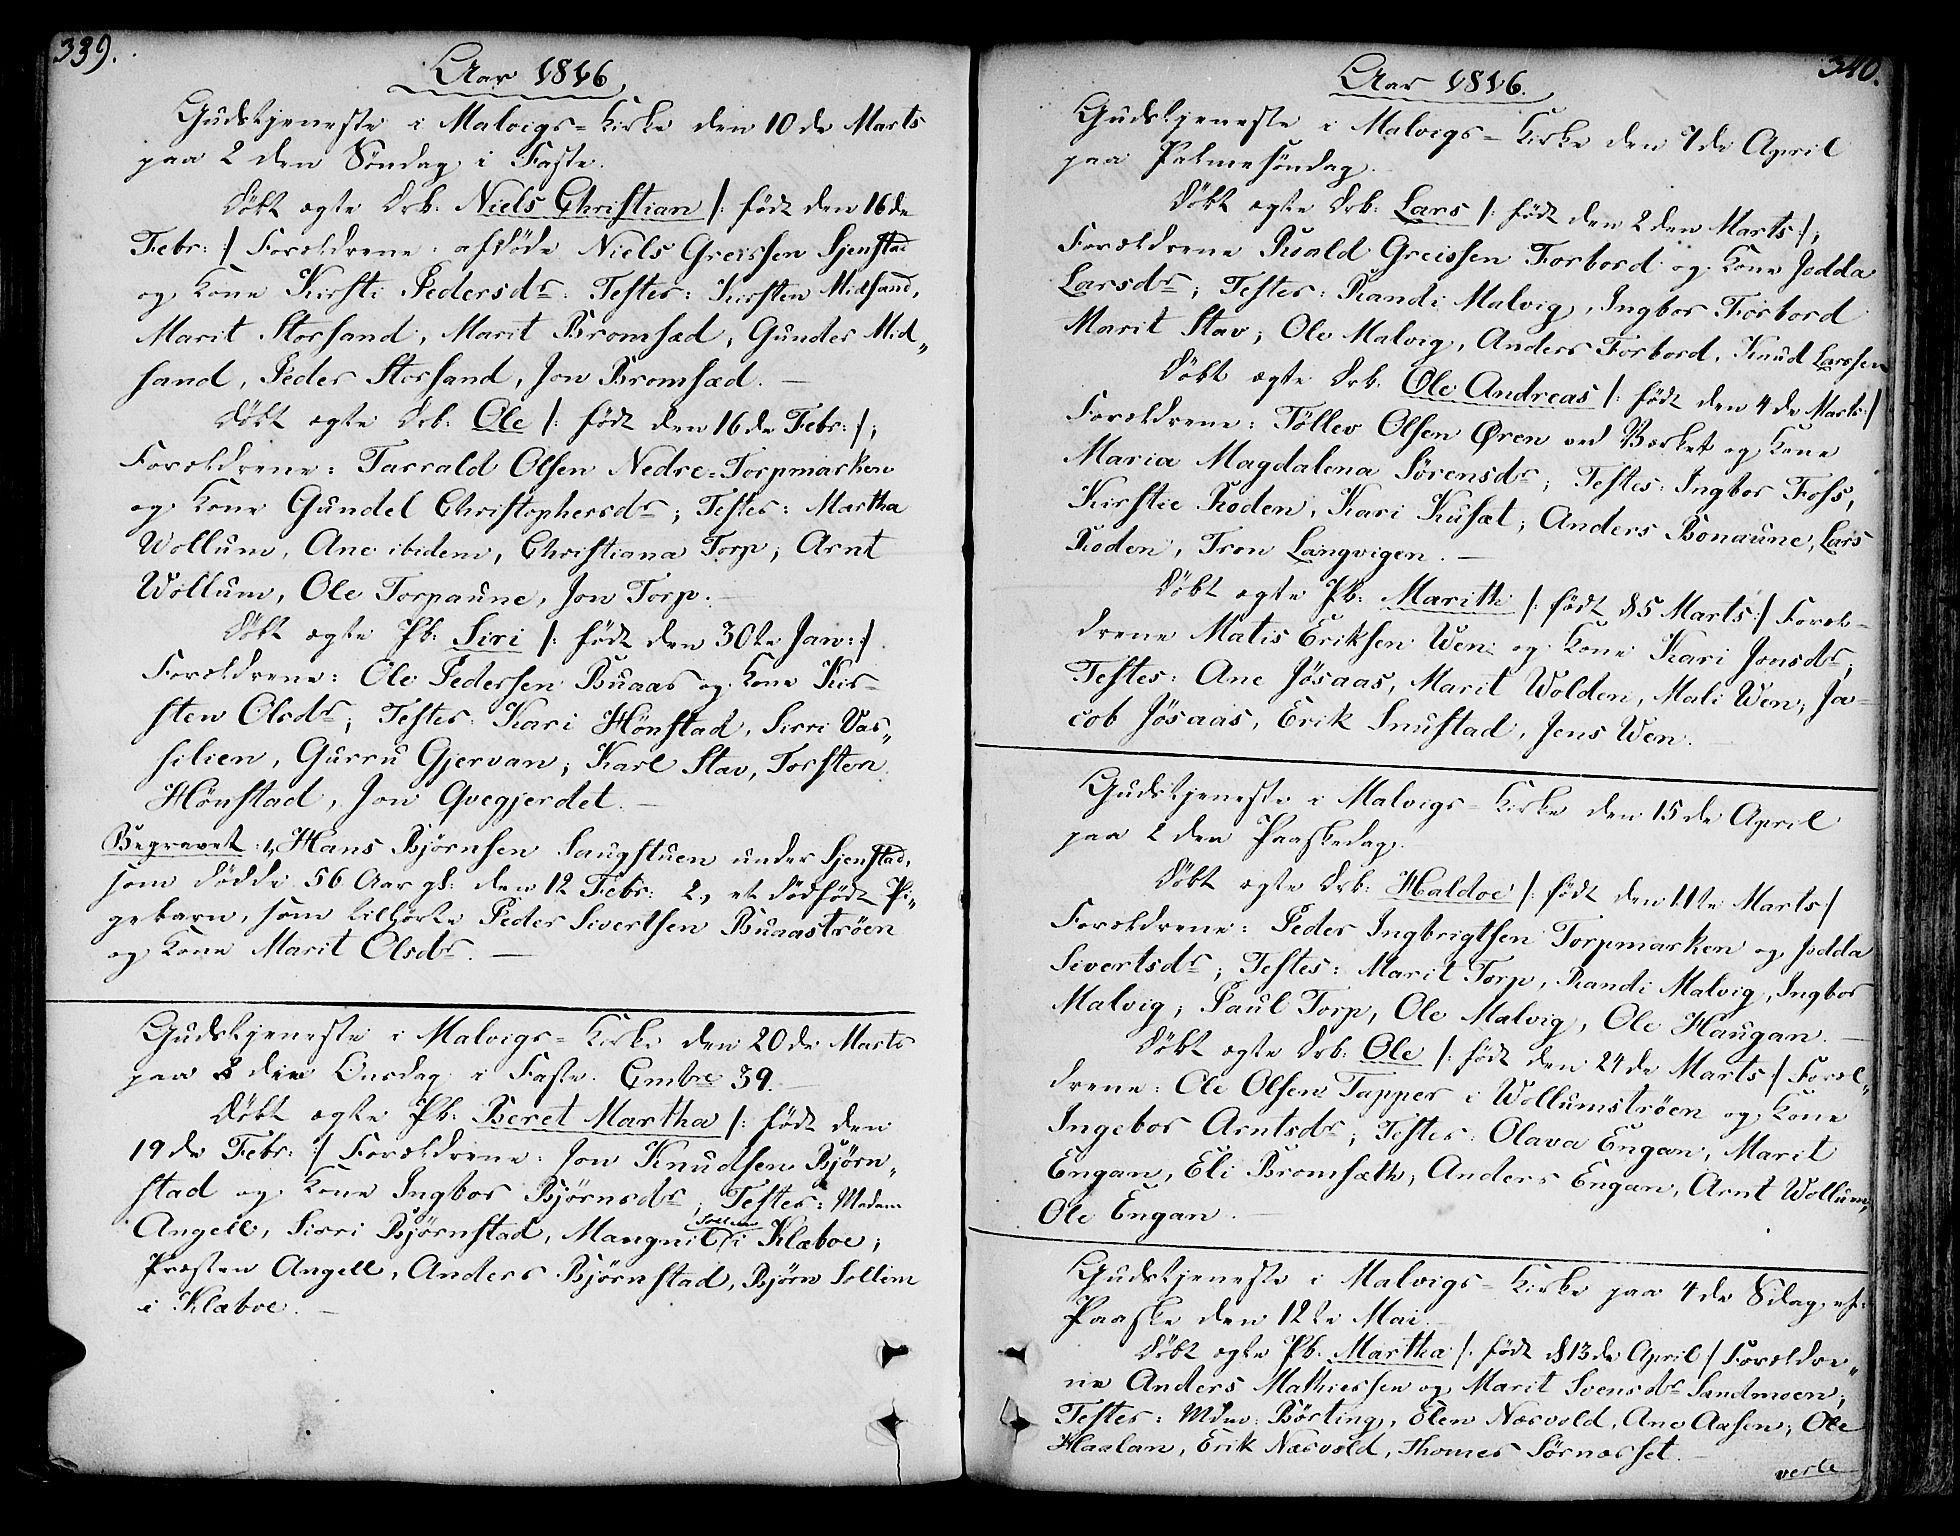 339.
Aar 1816
Gudstjeneste i Malvigs-Kirke den 10de Marts
paa 2den Söndag i Faste.
Döbt ægte Drb: Niels Christian /: födt den 16de
Febr: :/ Forældrene: afdöde Niels Greissen Sjenstad
og Kone Kirsti Pedersdr: Testes: Kirsten Midsand,
Marit Storsand, Marit Bromsæd, Gunder Mid„
sand, Peder Storsand, Jon Bromsæd. —
Döbt ægte Drb: Ole /: födt den 16de Febr: :/;
Forældrene: Tarrald Olsen Nedre-Torpmarken
og Kone Gundel Christophersdr; Testes: Martha
Wollum, Ane ibidem, Christiana Torp; Arnt
Wollum, Ole Torpaune, Jon Torp.
Döbt ægte Pb: Siri /: födt den 30te Jan: :/
Forældrene: Ole Pedersen Buaas og Kone Kir-
sten Olsdr; Testes: Kari Hönstad, Sirri Vas„
silien, Gurru Gjervan; Karl Stav, Torsten
Hönstad, Jon Qvegjerdet. —
Begravet: 1, Hans Björnsen Saugstuen under Sjenstad,
som dödde 56 Aar gl: den 12 Febr: 2, et dödfödt Pi„
gebarn, som tilhörte Peder Sivertsen Buaaströen
og Kone Marit Olsdr. —
Gudstjeneste i Malvigs-Kirke den 20de Marts
paa 3die Onsdag i Faste. Combre 39.
Döbt ægte Pb: Beret Martha /: födt den
19de Febr: :/ Forældrene: Jon Knudsen Björn„
stad og Kone Ingbor Björnsdr; Testes: Madam
Angell, Sirri Björnstad, Mangnil Sollim i Klæboe;
Præsten Angell, Anders Björnstad, Björn Sollim
i Klæboe. —
340.
Aar 1816.
Gudstjeneste i Malvigs-Kirke den 7de April
paa Palmesöndag.
Döbt ægte Drb: Lars /: födt den 2den Marts :/;
Forældrene Roald Greissen Forbord og Kone Jodda
Larsdr; Testes: Randi Malvig, Ingbor Forbord
Marit Stav; Ole Malvig, Anders Forbord, Knud Larssen
Döbt ægte Drb: Ole Andreas /: födt den 4de Marts :/
Forældrene: Töllev Olsen Øren vedVærket og Kone
Maria Magdalena Sörensdr; Testes: Ingbor Foss,
Kirstie Roden, Kari Kusæt; Anders Bonaune, Lars
Roden, Tron Langvigen. —
Döbt ægte Pb: Marith /: födt d 5 Marts :/ Foræl-
drene Matis Eriksen Wen og Kone Kari Jonsdr;
Testes: Ane Jösaas, Marit Wolden, Mali Wen; Ja-
cob Jösaas, Erik Snustad, Jens Wen.
Gudstjeneste i Malvigs-Kirke den 15de April
paa 2den Paaskedag.
Döbt ægte Drb: Haldoe /: födt den 11te Marts :/
Forældrene: Peder Ingbrigtsen Torpmarken og Jodda
Sivertsdr; Testes: Marit Torp, Randi Malvig, Ingbor
Malvig; Paul Torp, Ole Malvig, Ole Haugan. —
Döbt ægte Drb: Ole /: födt den 24de Marts :/ Foræl„
drene: Ole Olsen Tapper i Wollumströen og Kone
Ingebor Arntsdr; Testes: Olava Engan, Marit
Engan, Eli Bromsæth; Anders Engan, Arnt Wollum,
Ole Engan. —
Gudstjeneste i Malvigs-Kirke paa 4de Sdag. ef:
Paaske den 12te Mai.
Döbt ægte Pb: Martha /: födt d 13de April :/ Forældre„
ne Anders Mathiessen og Marit Svensdr Sandmoen;
Testes: Mdm: Börting, Elen Næsvold, Ane Aasen; Ole
Haalan, Erik Næsvold, Thomes Sörnæsset. —
verte